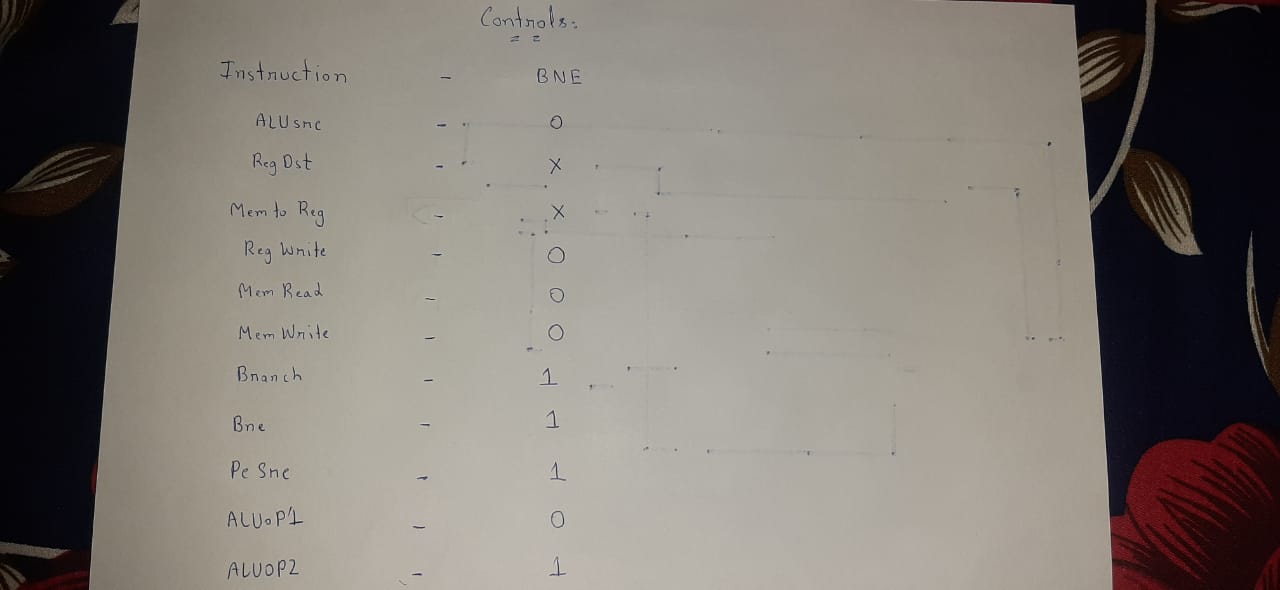 Controls:
Instruction - BNE
ALUsrc - 0
Reg Dst - X
Mem to Reg - X
Reg Write - 0
Mem Read - 0
Mem Write - 0
Branch - 1
Bne - 1
Pc Src - 1
ALUOP1 - 0
ALUOP2 - 1